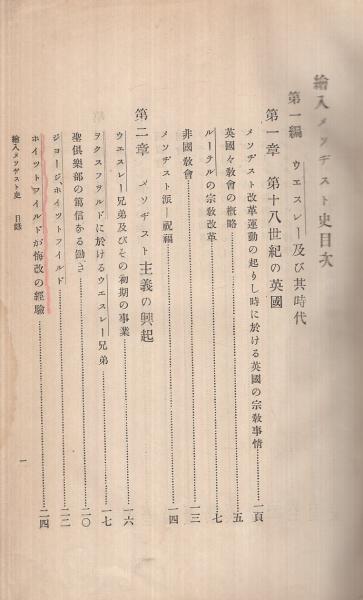 繪入メソヂスト史目次
第一編 ウエスレー及び其時代
第一章 第十八世紀の英國
メソヂスト改革運動の起りし時に於ける英國の宗敎事情……一頁
英國々敎會の槪略……五
ルーテルの宗敎改革……七
非國敎會……一三
メソヂスト派―祝福……一四
第二章 メソヂスト主義の興起
ウエスレー兄弟及びその初期の事業……一六
ヲクスフヲルドに於けるウエスレー兄弟……一七
聖俱樂部の篤信なる働き……二〇
ジョージ、ホイツトフイルド……二二
ホイツトフイルドが悔改の經驗……二四
繪入メソヂスト史 目錄
一